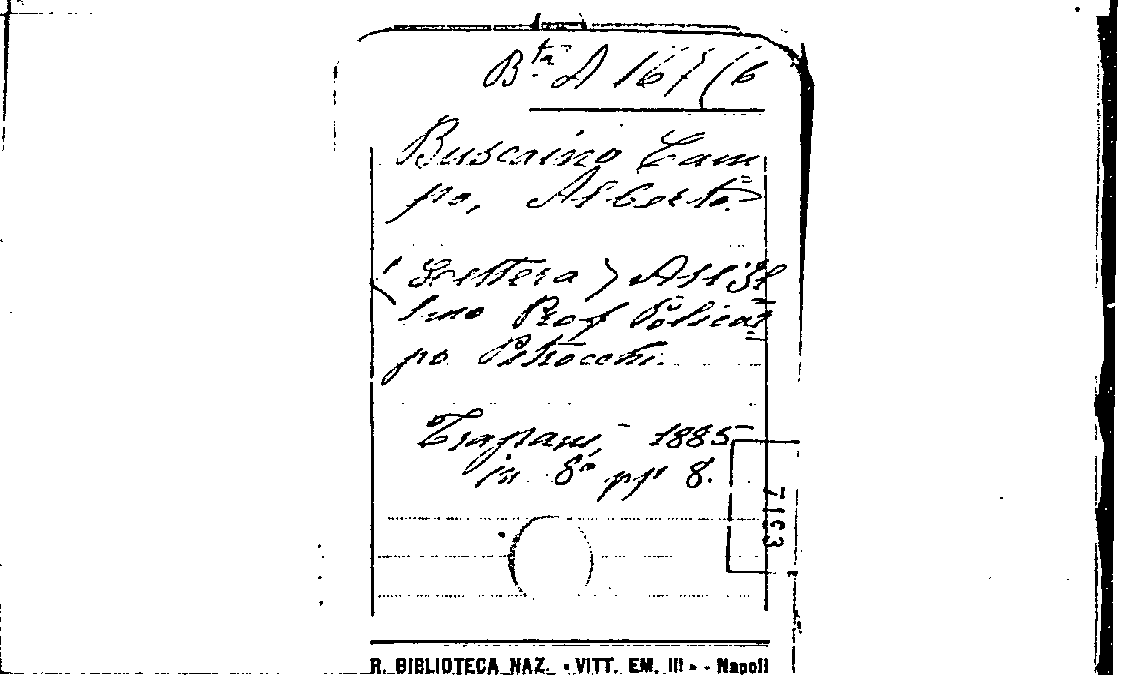 Bta A 167 (6
Buscaino Cam
po, Alberto.
(Lettera) All'Il
lmo Prof Policar
po Petrocchi.
Trapani, 1885
in 8° pp 8.
7153
R. BIBLIOTECA NAZ. - VITT. EM. III - - Napoli